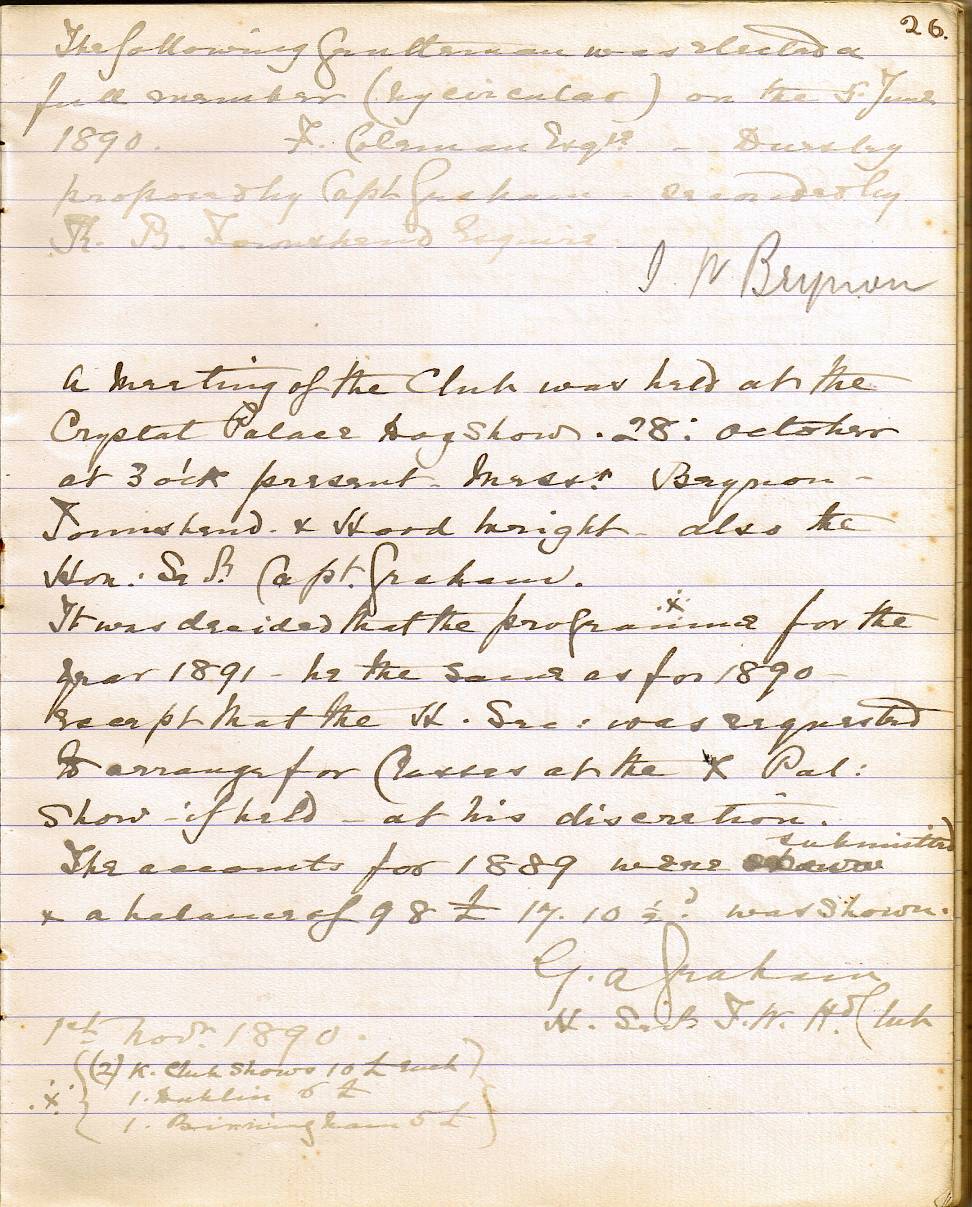 26.
The following Gentleman was elected a
full member (by circular) on the 5. June
1890. F. Coleman Esqre - Dursley
proposed by Capt Graham - seconded by
R. B. Townshend Esquire
J. W Beynon
A Meeting of the Club was held at the
Crystal Palace Dog Show. 28: October
at 3 o'ck present - Messrs. Beynon -
Townshend. & Hood Wright - also the
Hon: Sec. Capt. Graham.
It was decided that the programme x for the
year 1891 - be the same as for 1890 -
except that the H. Sec: was requested
to arrange for Classes at the X Pal:
Show - if held - at his discretion.
The accounts for 1889 were submitted
& a balance of 98 £ 17. 10 ½ d was shown.
G. A Graham
H. Sec. I. W. Hd Club
1st Novr. 1890.
(2) K. Club Shows 10 £ each
x 1. Dublin 5 £
1. Birmingham 5 £